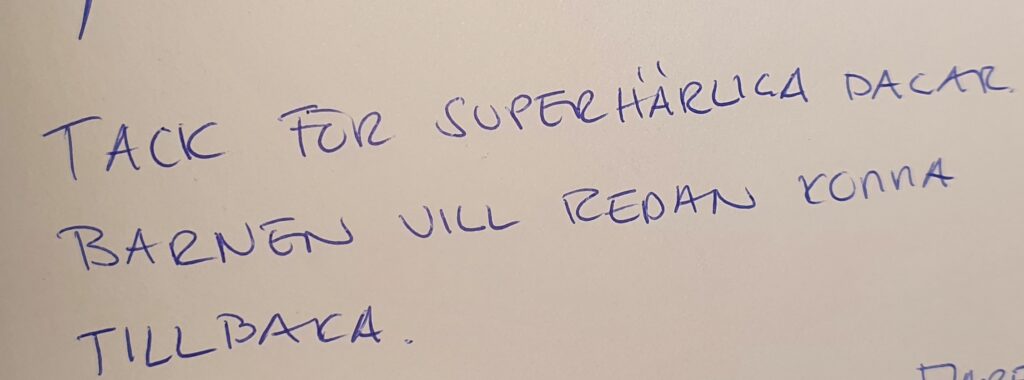 TACK FÖR SUPERHÄRLIGA DAGAR.
BARNEN VILL REDAN KOMMA
TILLBAKA.